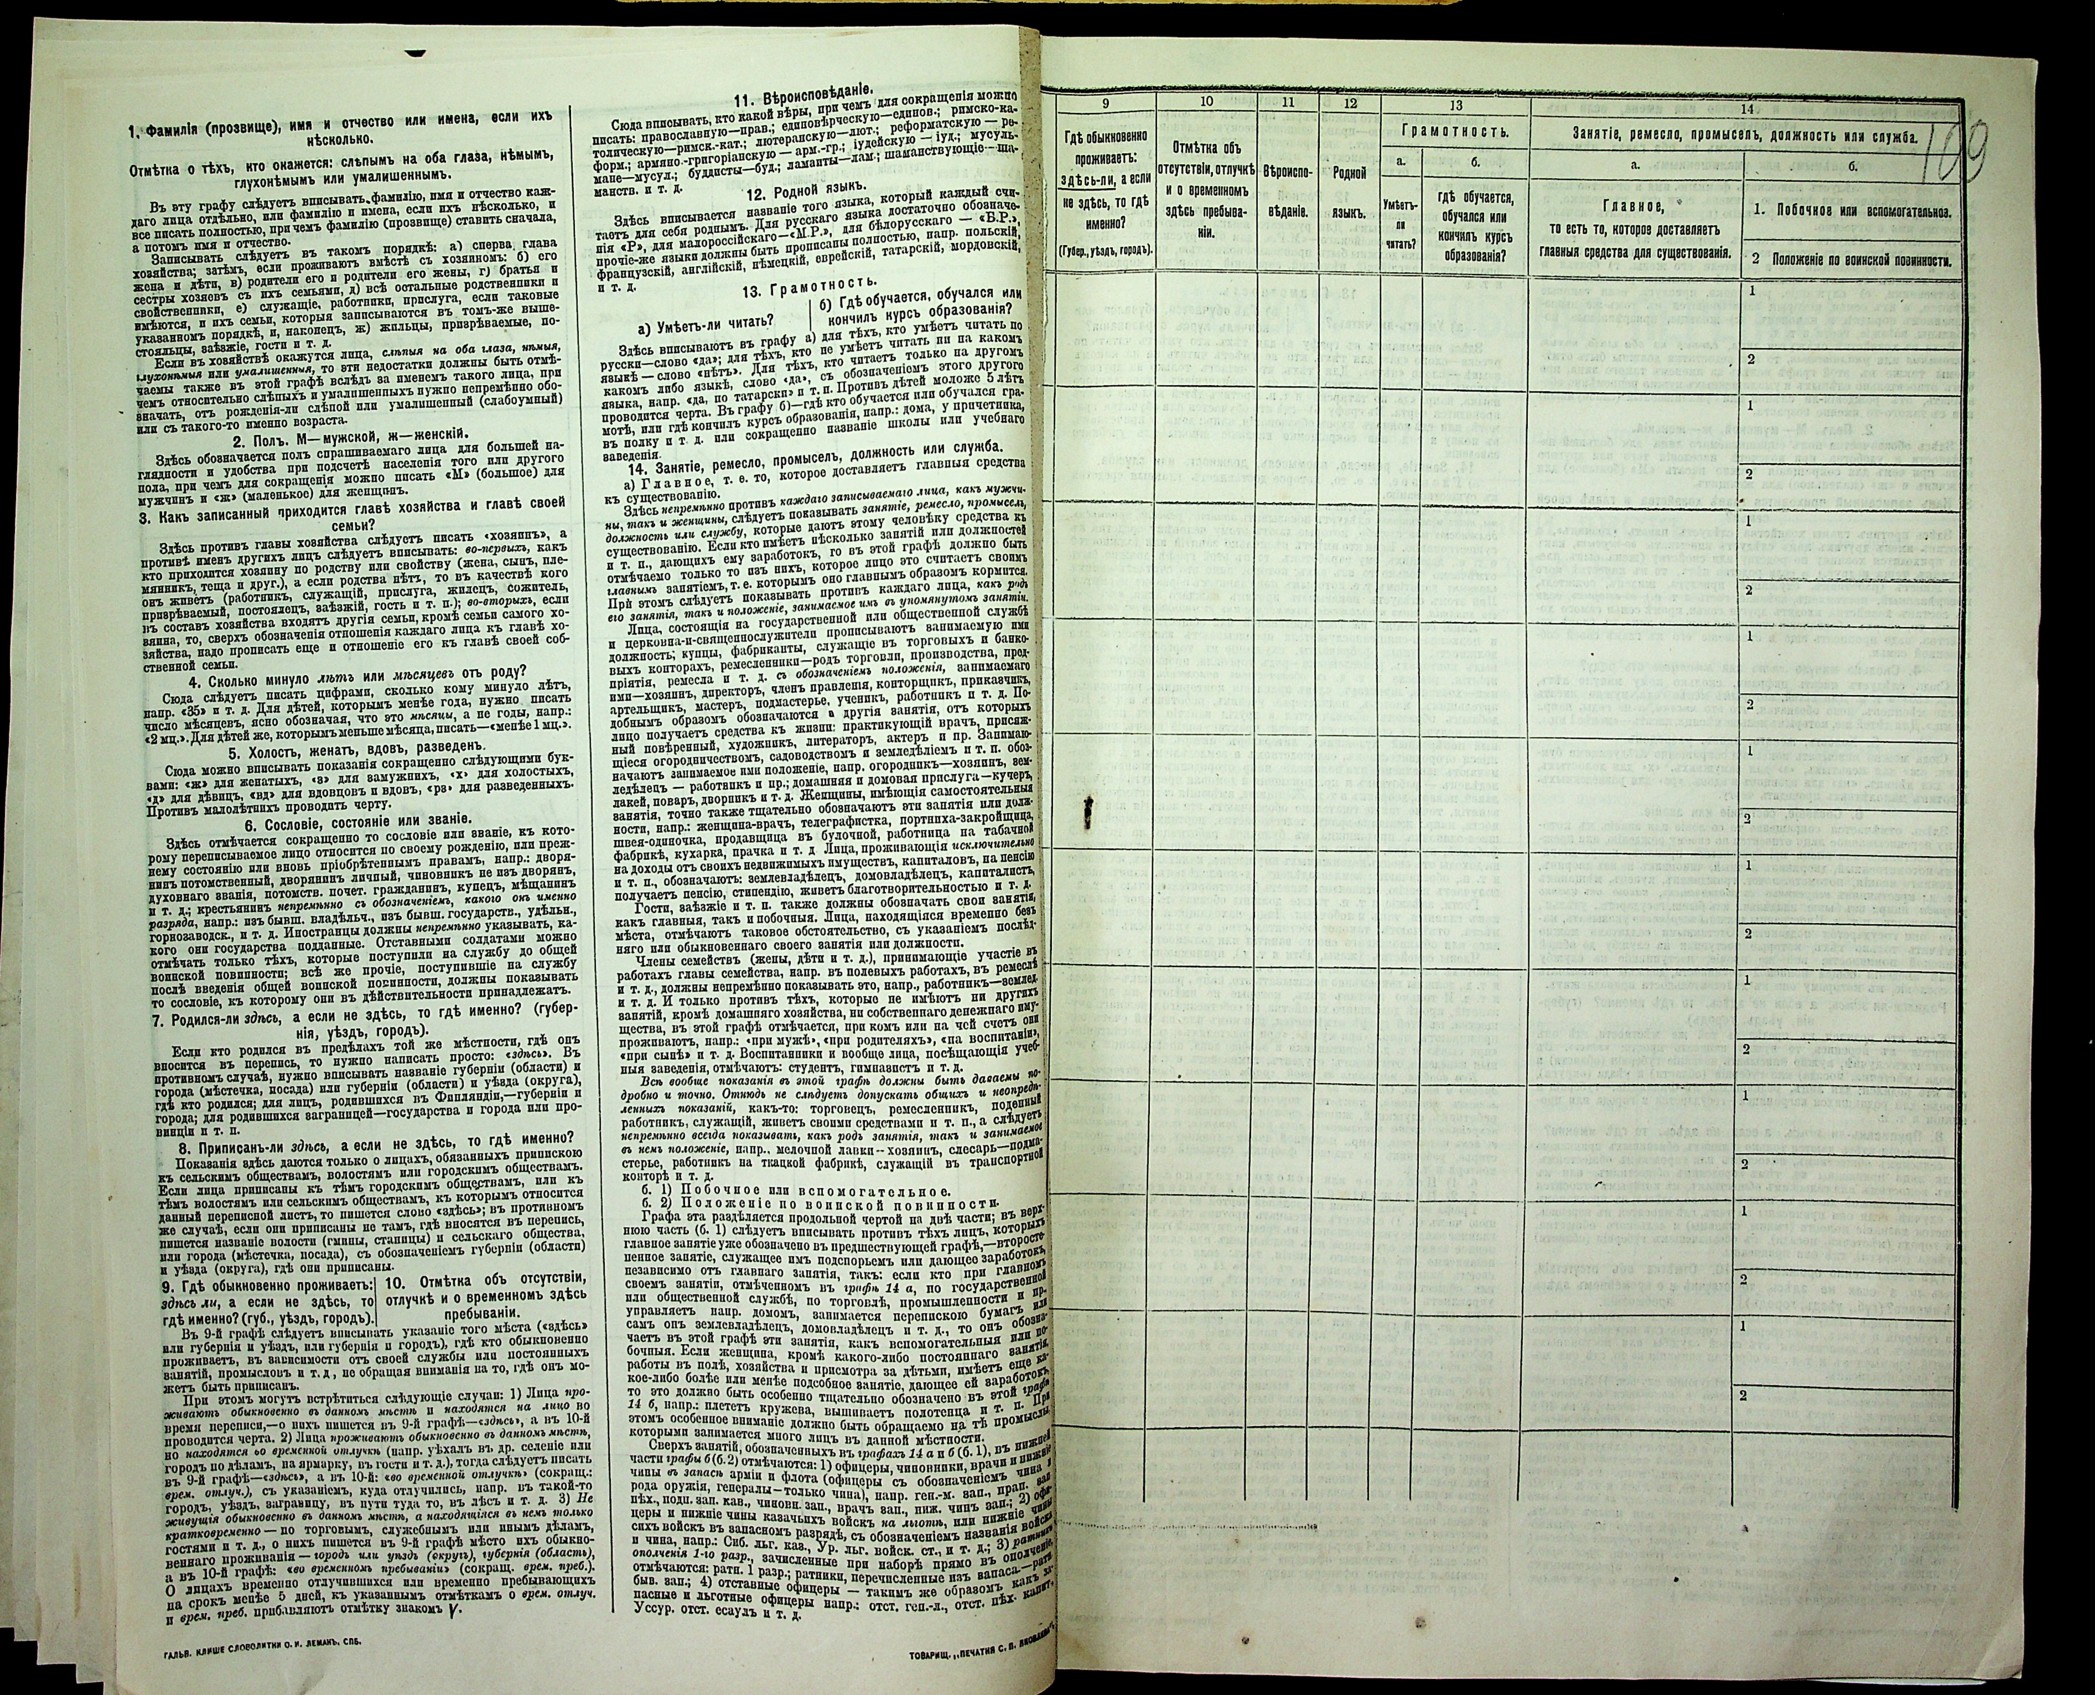 1. Фамилія (прозвище), имя и отчество или имена, если ихъ
нѣсколько.
Отмѣтка о тѣхъ, кто окажется: слѣпымъ на оба глаза, нѣмымъ,
глухонѣмымъ или умалишеннымъ.
Въ эту графу слѣдуетъ вписывать фамилію, имя и отчество каж-
даго лица отдѣльно, или фамилію и имена, если ихъ нѣсколько, и
все писать полностью, при чемъ фамилію (прозвище) ставить сначала,
а потомъ имя и отчество.
Записывать слѣдуетъ въ такомъ порядкѣ: а) сперва глава
хозяйства; затѣмъ, если проживаютъ вмѣстѣ съ хозяиномъ: б) его
жена и дѣти, в) родители его и родители его жены, г) братья и
сестры хозяевъ съ ихъ семьями, д) всѣ остальные родственники и
свойственники, е) служащіе, работники, прислуга, если таковые
имѣются, и ихъ семьи, которыя записываются въ томъ-же выше-
указанномъ порядкѣ, и, наконецъ, ж) жильцы, призрѣваемые, по-
стояльцы, заѣзжіе, гости и т. д.
Если въ хозяйствѣ окажутся лица, слѣпыя на оба глаза, нѣмыя,
глухонѣмыя или умалишенныя, то эти недостатки должны быть отмѣ-
чаемы также въ этой графѣ вслѣдъ за именемъ такого лица, при
чемъ относительно слѣпыхъ и умалишенныхъ нужно непремѣнно обо-
значать, отъ рожденія-ли слѣпой или умалишенный (слабоумный)
или съ такого-то именно возраста.
2. Полъ. М—мужской, ж—женскій.
Здѣсь обозначается полъ спрашиваемаго лица для большей на-
глядности и удобства при подсчетѣ населенія того или другого
пола, при чемъ для сокращенія можно писать «М» (большое) для
мужчинъ и «ж» (маленькое) для женщинъ.
3. Какъ записанный приходится главѣ хозяйства и главѣ своей
семьи?
Здѣсь противъ главы хозяйства слѣдуетъ писать «хозяинъ», а
противъ именъ другихъ лицъ слѣдуетъ вписывать: во-первыхъ, какъ
кто приходится хозяину по родству или свойству (жена, сынъ, пле-
мянникъ, теща и друг.), а если родства нѣтъ, то въ качествѣ кого
онъ живетъ (работникъ, служащій, прислуга, жилецъ, сожитель,
призрѣваемый, постоялецъ, заѣзжій, гость и т. п.); во-вторыхъ, если
въ составъ хозяйства входятъ другія семьи, кромѣ семьи самого хо-
зяина, то, сверхъ обозначенія отношенія каждаго лица къ главѣ хо-
зяйства, надо прописать еще и отношеніе его къ главѣ своей соб-
ственной семьи.
4. Сколько минуло лѣтъ или мѣсяцевъ отъ роду?
Сюда слѣдуетъ писать цифрами, сколько кому минуло лѣтъ,
напр. «35» и т. д. Для дѣтей, которымъ менѣе года, нужно писать
число мѣсяцевъ, ясно обозначая, что это мѣсяцы, а не годы, напр.:
«2 мц.». Для дѣтей же, которымъ меньше мѣсяца, писать—«менѣе 1 мц.».
5. Холостъ, женатъ, вдовъ, разведенъ.
Сюда можно вписывать показанія сокращенно слѣдующими бук-
вами: «ж» для женатыхъ, «з» для замужнихъ, «х» для холостыхъ,
«д» для дѣвицъ, «вд» для вдовцовъ и вдовъ, «рз» для разведенныхъ.
Противъ малолѣтнихъ проводить черту.
6. Сословіе, состояніе или званіе.
Здѣсь отмѣчается сокращенно то сословіе или званіе, къ кото-
рому переписываемое лицо относится по своему рожденію, или преж-
нему состоянію или вновь пріобрѣтеннымъ правамъ, напр.: дворя-
нинъ потомственный, дворянинъ личный, чиновникъ не изъ дворянъ,
духовнаго званія, потомств. почет. гражданинъ, купецъ, мѣщанинъ
и т. д.; крестьянинъ непремѣнно съ обозначеніемъ, какого онъ именно
разряда, напр.: изъ бывш. владѣльч., изъ бывш. государств., удѣльн.,
горнозаводск., и т. д. Иностранцы должны непремѣнно указывать, ка-
кого они государства подданные. Отставными солдатами можно
отмѣчать только тѣхъ, которые поступили на службу до общей
воинской повинности; всѣ же прочіе, поступившіе на службу
послѣ введенія общей воинской повинности, должны показывать
то сословіе, къ которому они въ дѣйствительности принадлежатъ.
7. Родился-ли здѣсь, а если не здѣсь, то гдѣ именно? (губер-
нія, уѣздъ, городъ).
Если кто родился въ предѣлахъ той же мѣстности, гдѣ онъ
вносится въ перепись, то нужно написать просто: «здѣсь». Въ
противномъ случаѣ, нужно вписывать названіе губерніи (области) и
города (мѣстечка, посада) или губерніи (области) и уѣзда (округа),
гдѣ кто родился; для лицъ, родившихся въ Финляндіи,—губерніи и
города; для родившихся заграницей—государства и города или про-
винціи и т. п.
8. Приписанъ-ли здѣсь, а если не здѣсь, то гдѣ именно?
Показанія здѣсь даются только о лицахъ, обязанныхъ припискою
къ сельскимъ обществамъ, волостямъ или городскимъ обществамъ.
Если лица приписаны къ тѣмъ городскимъ обществамъ, или къ
тѣмъ волостямъ или сельскимъ обществамъ, къ которымъ относится
данный переписной листъ, то пишется слово «здѣсь»; въ противномъ
же случаѣ, если они приписаны не тамъ, гдѣ вносятся въ перепись,
пишется названіе волости (гмины, станицы) и сельскаго общества,
или города (мѣстечка, посада), съ обозначеніемъ губерніи (области)
и уѣзда (округа), гдѣ они приписаны.
9. Гдѣ обыкновенно проживаетъ:
здѣсь ли, а если не здѣсь, то
гдѣ именно? (губ., уѣздъ, городъ).
10. Отмѣтка объ отсутствіи,
отлучкѣ и о временномъ здѣсь
пребываніи.
Въ 9-й графѣ слѣдуетъ вписывать указаніе того мѣста («здѣсь»
или губернія и уѣздъ, или губернія и городъ), гдѣ кто обыкновенно
проживаетъ, въ зависимости отъ своей службы или постоянныхъ
занятій, промысловъ и т. д, не обращая вниманія на то, гдѣ онъ мо-
жетъ быть приписанъ.
При этомъ могутъ встрѣтиться слѣдующіе случаи: 1) Лица про-
живаютъ обыкновенно въ данномъ мѣстѣ и находятся на лицо во
время переписи,—о нихъ пишется въ 9-й графѣ—«здѣсь», а въ 10-й
проводится черта. 2) Лица проживаютъ обыкновенно въ данномъ мѣстѣ,
но находятся во временной отлучкѣ (напр. уѣхалъ въ др. селеніе или
городъ по дѣламъ, на ярмарку, въ гости и т. д.), тогда слѣдуетъ писать
въ 9-й графѣ—«здѣсь», а въ 10-й: «во временной отлучкѣ» (сокращ.:
врем. отлуч.), съ указаніемъ, куда отлучились, напр. въ такой-то
городъ, уѣздъ, заграницу, въ пути туда то, въ лѣсъ и т. д. 3) Не
живущія обыкновенно въ данномъ мѣстѣ, а находящіяся въ немъ только
кратковременно—по торговымъ, служебнымъ или инымъ дѣламъ,
гостями и т. д., о нихъ пишется въ 9-й графѣ мѣсто ихъ обыкно-
веннаго проживанія—городъ или уѣздъ (округъ), губернія (область),
а въ 10-й графѣ: «во временномъ пребываніи» (сокращ. врем. преб.).
О лицахъ временно отлучившихся или временно пребывающихъ
на срокъ менѣе 5 дней, къ указаннымъ отмѣткамъ о врем. отлуч.
и врем. преб. прибавляютъ отмѣтку знакомъ V.
ГАЛЬВ. КЛИШЕ СЛОВОЛИТНИ О. И. ЛЕМАНЪ, СПБ.
11. Вѣроисповѣданіе.
Сюда вписывать, кто какой вѣры, при чемъ для сокращенія можно
писать: православную—прав.; единовѣрческую—единов.; римско-ка-
толическую—римск.-кат.; лютеранскую—лют.; реформатскую—ре-
форм.; армяно.-григоріанскую—арм.-гр.; іудейскую—іуд.; мусуль-
мане—мусул.; буддисты—буд.; ламаиты—лам.; шаманствующіе—ша-
манств. и т. д.
12. Родной языкъ.
Здѣсь вписывается названіе того языка, который каждый счи-
таетъ для себя роднымъ. Для русскаго языка достаточно обозначе-
нія «Р», для малороссійскаго—«М.Р.», для бѣлорусскаго—«Б.Р.»,
прочіе-же языки должны быть прописаны полностью, напр. польскій,
французскій, англійскій, нѣмецкій, еврейскій, татарскій, мордовскій,
и т. д.
13. Грамотность.
а) Умѣетъ-ли читать?
б) Гдѣ обучается, обучался или
кончилъ курсъ образованія?
Здѣсь вписываютъ въ графу а) для тѣхъ, кто умѣетъ читать по
русски—слово «да»; для тѣхъ, кто не умѣетъ читать ни на какомъ
языкѣ—слово «нѣтъ». Для тѣхъ, кто читаетъ только на другомъ
какомъ либо языкѣ, слово «да», съ обозначеніемъ этого другого
языка, напр. «да, по татарски» и т. п. Противъ дѣтей моложе 5 лѣтъ
проводится черта. Въ графу б)—гдѣ кто обучается или обучался гра-
мотѣ, или гдѣ кончилъ курсъ образованія, напр.: дома, у причетника,
въ полку и т. д. или сокращенно названіе школы или учебнаго
заведенія.
14. Занятіе, ремесло, промыселъ, должность или служба.
а) Главное, т. е. то, которое доставляетъ главныя средства
къ существованію.
Здѣсь непремѣнно противъ каждаго записываемаго лица, какъ мужчи-
ны, такъ и женщины, слѣдуетъ показывать занятіе, ремесло, промыселъ,
должность или службу, которые даютъ этому человѣку средства къ
существованію. Если кто имѣетъ нѣсколько занятій или должностей
и т. п., дающихъ ему заработокъ, то въ этой графѣ должно быть
отмѣчаемо только то изъ нихъ, которое лицо это считаетъ своимъ
главнымъ занятіемъ, т. е. которымъ оно главнымъ образомъ кормится.
При этомъ слѣдуетъ показывать противъ каждаго лица, какъ родъ
его занятія, такъ и положеніе, занимаемое имъ въ упомянутомъ занятіи.
Лица, состоящія на государственной или общественной службѣ
и церковна-и-священнослужители прописываютъ занимаемую ими
должность; купцы, фабриканты, служащіе въ торговыхъ и банко-
выхъ конторахъ, ремесленники—родъ торговли, производства, пред-
пріятія, ремесла и т. д. съ обозначеніемъ положенія, занимаемаго
ими—хозяинъ, директоръ, членъ правленія, конторщикъ, приказчикъ,
артельщикъ, мастеръ, подмастерье, ученикъ, работникъ и т. д. По-
добнымъ образомъ обозначаются и другія занятія, отъ которыхъ
лицо получаетъ средства къ жизни: практикующій врачъ, присяж-
ный повѣренный, художникъ, литераторъ, актеръ и пр. Занимаю-
щіеся огородничествомъ, садоводствомъ и земледѣліемъ и т. п. обоз-
начаютъ занимаемое ими положеніе, напр. огородникъ—хозяинъ, зем-
ледѣлецъ—работникъ и пр.; домашняя и домовая прислуга—кучеръ,
лакей, поваръ, дворникъ и т. д. Женщины, имѣющія самостоятельныя
занятія, точно также тщательно обозначаютъ эти занятія или долж-
ности, напр.: женщина-врачъ, телеграфистка, портниха-закройщица,
швея-одиночка, продавщица въ булочной, работница на табачной
фабрикѣ, кухарка, прачка и т. д Лица, проживающія исключительно
на доходы отъ своихъ недвижимыхъ имуществъ, капиталовъ, на пенсію
и т. п., обозначаютъ: землевладѣлецъ, домовладѣлецъ, капиталистъ,
получаетъ пенсію, стипендію, живетъ благотворительностью и т. д.
Гости, заѣзжіе и т. п. также должны обозначать свои занятія,
какъ главныя, такъ и побочныя. Лица, находящіяся временно безъ
мѣста, отмѣчаютъ таковое обстоятельство, съ указаніемъ послѣд-
няго или обыкновеннаго своего занятія или должности.
Члены семействъ (жены, дѣти и т. д.), принимающіе участіе въ
работахъ главы семейства, напр. въ полевыхъ работахъ, въ ремеслѣ
и т. д., должны непремѣнно показывать это, напр., работникъ—землед.
и т. д. И только противъ тѣхъ, которые не имѣютъ ни другихъ
занятій, кромѣ домашняго хозяйства, ни собственнаго денежнаго иму-
щества, въ этой графѣ отмѣчается, при комъ или на чей счетъ они
проживаютъ, напр.: «при мужѣ», «при родителяхъ», «на воспитаніи»,
«при сынѣ» и т. д. Воспитанники и вообще лица, посѣщающія учеб-
ныя заведенія, отмѣчаютъ: студентъ, гимназистъ и т. д.
Всѣ вообще показанія въ этой графѣ должны быть даваемы по-
дробно и точно. Отнюдь не слѣдуетъ допускать общихъ и неопредѣ-
ленныхъ показаній, какъ-то: торговецъ, ремесленникъ, поденный
работникъ, служащій, живетъ своими средствами и т. п., а слѣдуетъ
непремѣнно всегда показывать, какъ родъ занятія, такъ и занимаемое
въ немъ положеніе, напр., мелочной лавки--хозяинъ, слесарь—подма-
стерье, работникъ на ткацкой фабрикѣ, служащій въ транспортной
конторѣ и т. д.
б. 1) Побочное или вспомогательное.
б. 2) Положеніе по воинской повинности.
Графа эта раздѣляется продольной чертой на двѣ части; въ верх-
нюю часть (б. 1) слѣдуетъ вписывать противъ тѣхъ лицъ, которыхъ
главное занятіе уже обозначено въ предшествующей графѣ,—второсте-
пенное занятіе, служащее имъ подспорьемъ или дающее заработокъ,
независимо отъ главнаго занятія, такъ: если кто при главномъ
своемъ занятіи, отмѣченномъ въ графѣ 14 а, по государственной
или общественной службѣ, по торговлѣ, промышленности и пр.
управляетъ напр. домомъ, занимается перепискою бумагъ или
самъ онъ землевладѣлецъ, домовладѣлецъ и т. д., то онъ обозна-
чаетъ въ этой графѣ эти занятія, какъ вспомогательныя или по-
бочныя. Если женщина, кромѣ какого-либо постояннаго занятія,
работы въ полѣ, хозяйства и присмотра за дѣтьми, имѣетъ еще ка-
кое-либо болѣе или менѣе подсобное занятіе, дающее ей заработокъ,
то это должно быть особенно тщательно обозначено въ этой графѣ
14 б, напр.: плететъ кружева, вышиваетъ полотенца и т. п. При
этомъ особенное вниманіе должно быть обращаемо на тѣ промыслы,
которыми занимается много лицъ въ данной мѣстности.
Сверхъ занятій, обозначенныхъ въ графахъ 14 а и б (б. 1), въ нижней
части графы б (б. 2) отмѣчаются: 1) офицеры, чиновники, врачи и нижніе
чины въ запасѣ арміи и флота (офицеры съ обозначеніемъ чина и
рода оружія, генералы—только чина), напр. ген.-м. зап., прап. зап.
пѣх., подп. зап. кав., чиновн. зап., врачъ зап., ниж. чинъ зап.; 2) офи-
церы и нижніе чины казачьихъ войскъ на льготѣ, или нижніе чины
сихъ войскъ въ запасномъ разрядѣ, съ обозначеніемъ названія войска
и чина, напр.: Сиб. льг. каз., Ур. льг. войск. ст., и т. д.; 3) ратники
ополченія 1-го разр., зачисленные при наборѣ прямо въ ополченіе,
отмѣчаются: ратн. 1 разр.; ратники, перечисленные изъ запаса—ратн.
быв. зап.; 4) отставные офицеры — такимъ же образомъ какъ за-
пасные и льготные офицеры напр.: отст. ген.-л., отст. пѣх. капит.,
Уссур. отст. есаулъ и т. д.
ТОВАРИЩ. „ПЕЧАТНЯ С. П. ЯКОВЛЕВА".
109
9
10
11
12
13
14
Гдѣ обыкновенно
проживаетъ:
здѣсь-ли, а если
не здѣсь, то гдѣ
именно?
(Губер., уѣздъ, городъ).
Отмѣтка объ
отсутствіи, отлучкѣ
и о временномъ
здѣсь пребыва-
ніи.
Вѣроиспо-
вѣданіе.
Родной
языкъ.
Грамотность.
а.
Умѣетъ-
ли
читать?
б.
гдѣ обучается,
обучался или
кончилъ курсъ
образованія?
Занятіе, ремесло, промыселъ, должность или служба.
а.
Главное,
то есть то, которое доставляетъ
главныя средства для существованія.
б.
1. Побочное или вспомогательное.
2 Положеніе по воинской повинности.
1
2
1
2
1
2
1
2
1
2
1
2
1
2
1
2
1
2
1
2